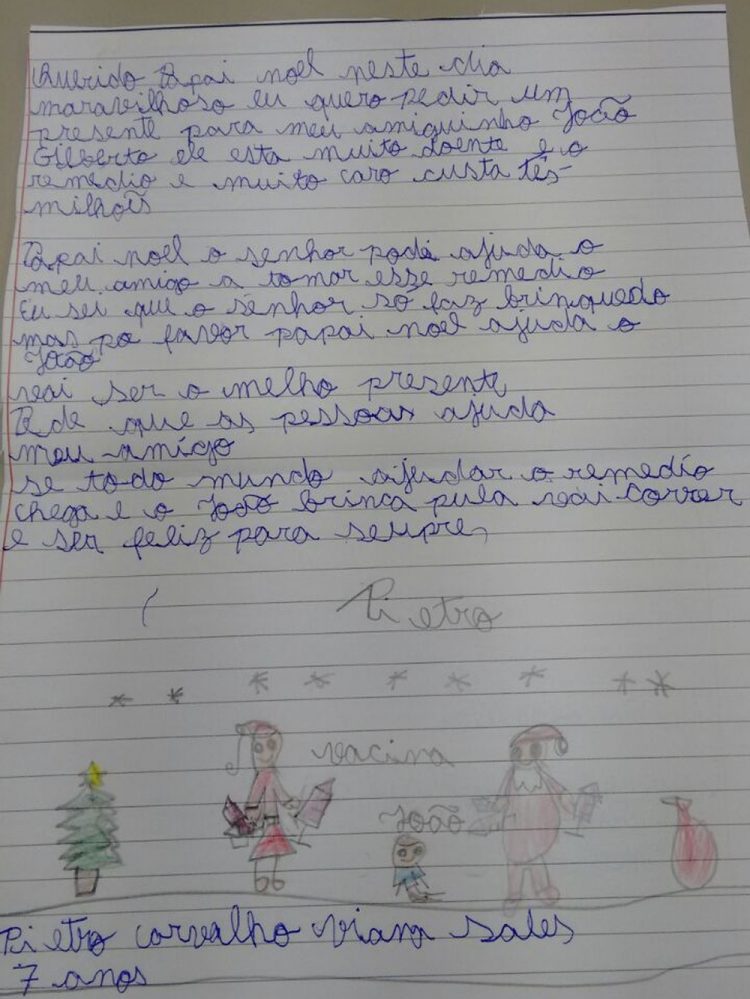 Querido Papai noel neste dia
maravilhoso eu quero pedir um
presente para meu amiguinho João
Gilberto ele esta muito doente e o
remedio e muito caro custa tês
milhões
Papai noel o senhor pode ajuda o
meu amigo a tomar esse remedio
Eu sei que o senhor so faz brinquedo
mas po favor papai noel ajuda o
João
vai ser o melho presente
Pede que as pessoas ajuda
meu amigo
se todo mundo ajudar o remedio
chega e o João brinca pula vai correr
e ser feliz para sempre
Pietro
vacina
João
Pietro carvalho viana sales
7 anos